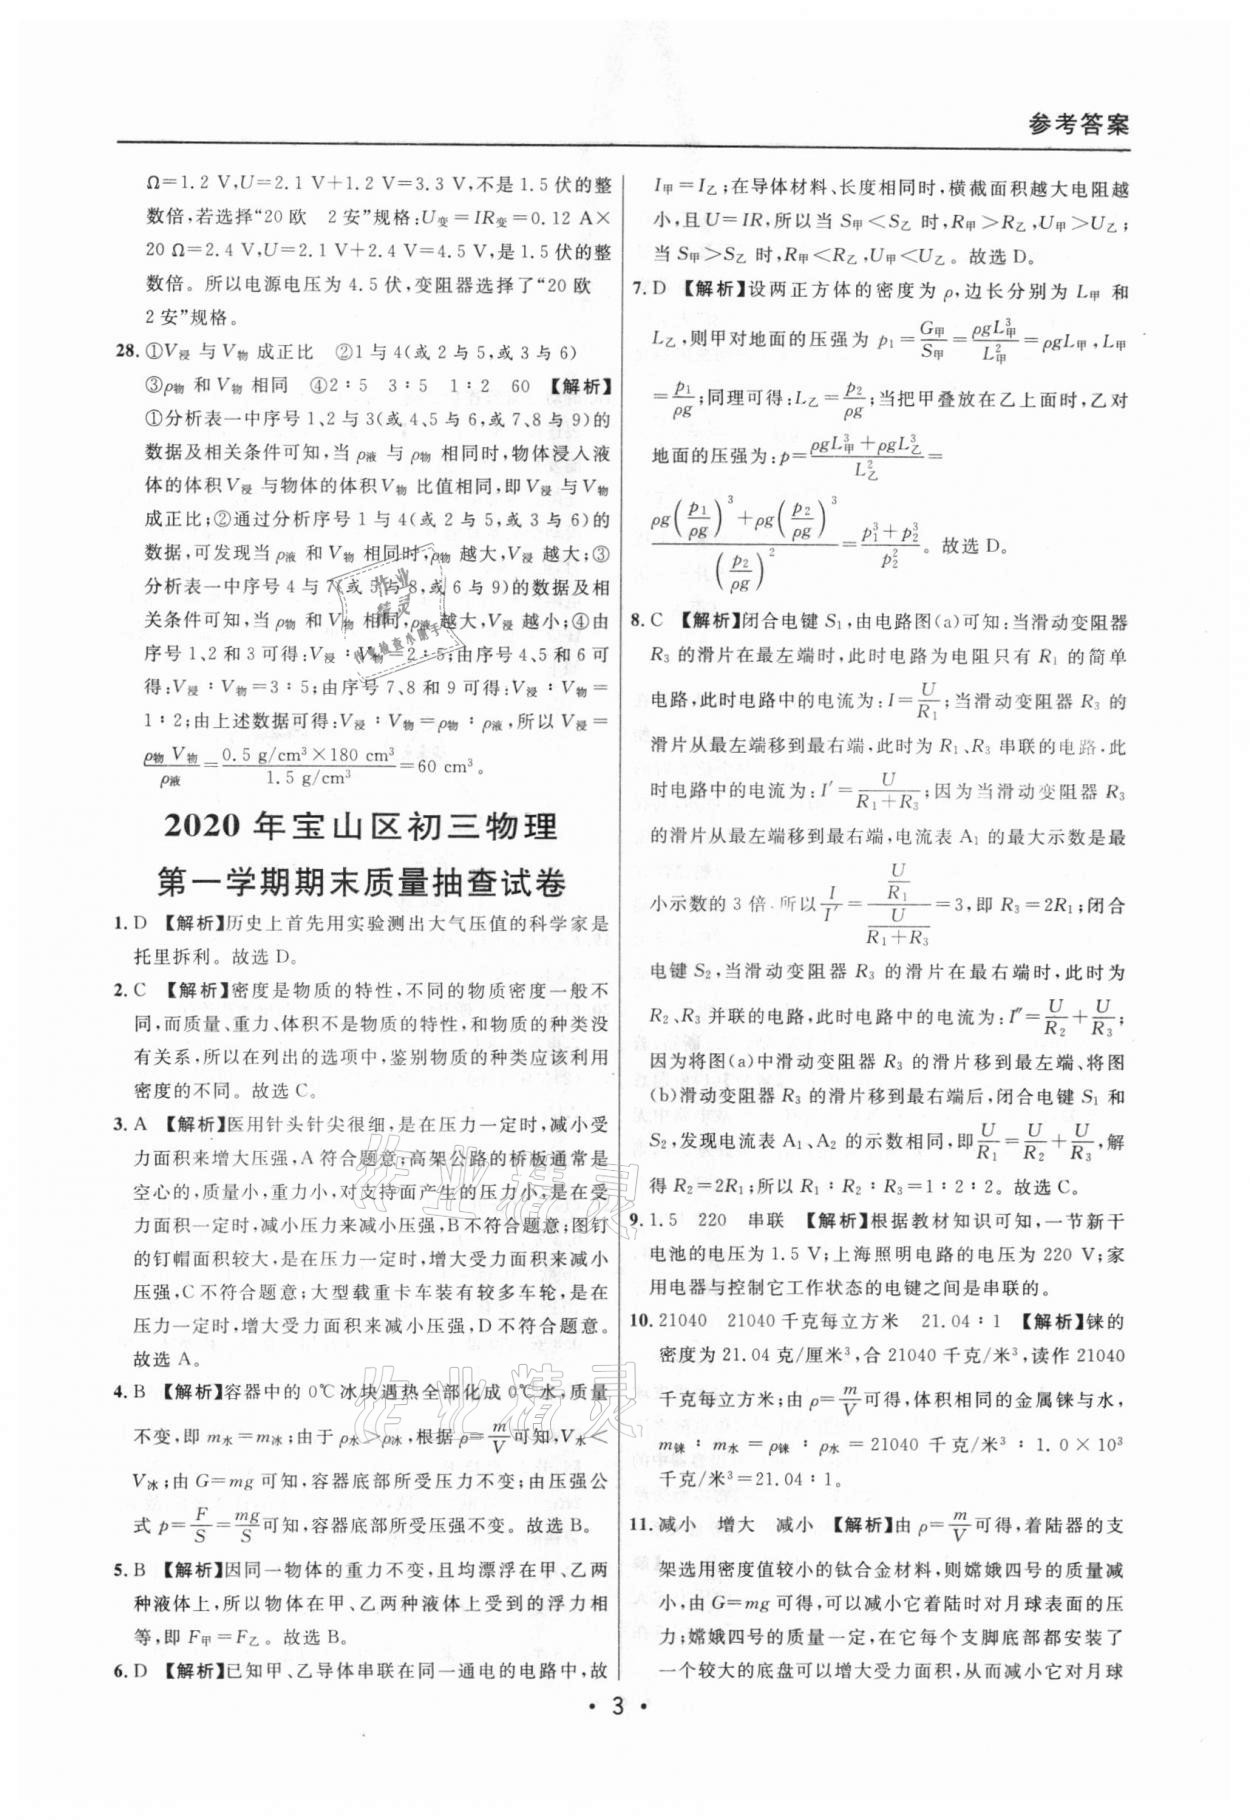 参考答案
Ω=1.2 V,U=2.1 V+1.2 V=3.3 V,不是 1.5 伏的整
数倍,若选择“20 欧　2 安”规格:U变=IR变=0.12 A×
20 Ω=2.4 V,U=2.1 V+2.4 V=4.5 V,是 1.5 伏的整
数倍。所以电源电压为 4.5 伏,变阻器选择了“20 欧
2 安”规格。
28. ①V浸 与 V物 成正比　②1 与 4(或 2 与 5,或 3 与 6)
③ρ物 和 V物 相同　④2∶5　3∶5　1∶2　60　【解析】
①分析表一中序号 1、2 与 3(或 4、5 与 6,或 7、8 与 9)的
数据及相关条件可知,当 ρ液 与 ρ物 相同时,物体浸入液
体的体积 V浸 与物体的体积 V物 比值相同,即 V浸 与 V物
成正比;②通过分析序号 1 与 4(或 2 与 5,或 3 与 6)的
数据,可发现当 ρ液 和 V物 相同时,ρ物 越大,V浸 越大;③
分析表一中序号 4 与 7(或 5 与 8,或 6 与 9)的数据及相
关条件可知,当 ρ物 和 V物 相同,ρ液 越大,V浸 越小;④由
序号 1、2 和 3 可得:V浸∶V物=2∶5;由序号 4、5 和 6 可
得:V浸∶V物=3∶5;由序号 7、8 和 9 可得:V浸∶V物=
1∶2;由上述数据可得:V浸∶V物=ρ物∶ρ液,所以 V浸=
ρ物V物/ρ液=0.5 g/cm³×180 cm³/1.5 g/cm³=60 cm³。
2020 年宝山区初三物理
第一学期期末质量抽查试卷
1. D　【解析】历史上首先用实验测出大气压值的科学家是
托里拆利。故选 D。
2. C　【解析】密度是物质的特性,不同的物质密度一般不
同,而质量、重力、体积不是物质的特性,和物质的种类没
有关系,所以在列出的选项中,鉴别物质的种类应该利用
密度的不同。故选 C。
3. A　【解析】医用针头针尖很细,是在压力一定时,减小受
力面积来增大压强,A 符合题意;高架公路的桥板通常是
空心的,质量小,重力小,对支持面产生的压力小,是在受
力面积一定时,减小压力来减小压强,B 不符合题意;图钉
的钉帽面积较大,是在压力一定时,增大受力面积来减小
压强,C 不符合题意;大型载重卡车装有较多车轮,是在
压力一定时,增大受力面积来减小压强,D 不符合题意。
故选 A。
4. B　【解析】容器中的 0℃冰块遇热全部化成 0℃水,质量
不变,即 m水=m冰;由于 ρ水>ρ冰,根据 ρ=m/V 可知,V水<
V冰;由 G=mg 可知,容器底部所受压力不变;由压强公
式 p=F/S=mg/S 可知,容器底部所受压强不变。故选 B。
5. B　【解析】因同一物体的重力不变,且均漂浮在甲、乙两
种液体上,所以物体在甲、乙两种液体上受到的浮力相
等,即 F甲=F乙。故选 B。
6. D　【解析】已知甲、乙导体串联在同一通电的电路中,故
I甲=I乙;在导体材料、长度相同时,横截面积越大电阻越
小,且 U=IR,所以当 S甲<S乙 时,R甲>R乙,U甲>U乙;
当 S甲>S乙 时,R甲<R乙,U甲<U乙。故选 D。
7. D　【解析】设两正方体的密度为 ρ,边长分别为 L甲 和
L乙,则甲对地面的压强为 p₁=G甲/S甲=ρgL³甲/L²甲=ρgL甲,L甲
=p₁/ρg;同理可得:L乙=p₂/ρg;当把甲叠放在乙上面时,乙对
地面的压强为:p=(ρgL³甲+ρgL³乙)/L²乙=
(ρg(p₁/ρg)³+ρg(p₂/ρg)³)/(p₂/ρg)²=(p₁³+p₂³)/p₂²。故选 D。
8. C　【解析】闭合电键 S₁,由电路图(a)可知:当滑动变阻器
R₃ 的滑片在最左端时,此时电路为电阻只有 R₁ 的简单
电路,此时电路中的电流为:I=U/R₁;当滑动变阻器 R₃ 的
滑片从最左端移到最右端,此时为 R₁、R₃ 串联的电路,此
时电路中的电流为:I′=U/(R₁+R₃);因为当滑动变阻器 R₃
的滑片从最左端移到最右端,电流表 A₁ 的最大示数是最
小示数的 3 倍,所以 I/I′=(U/R₁)/(U/(R₁+R₃))=3,即 R₃=2R₁;闭合
电键 S₂,当滑动变阻器 R₃ 的滑片在最右端时,此时为
R₂、R₃ 并联的电路,此时电路中的电流为:I″=U/R₂+U/R₃;
因为将图(a)中滑动变阻器 R₃ 的滑片移到最左端、将图
(b)滑动变阻器 R₃ 的滑片移到最右端后,闭合电键 S₁ 和
S₂,发现电流表 A₁、A₂ 的示数相同,即 U/R₁=U/R₂+U/R₃,解
得 R₂=2R₁;所以 R₁∶R₂∶R₃=1∶2∶2。故选 C。
9. 1.5　220　串联　【解析】根据教材知识可知,一节新干
电池的电压为 1.5 V;上海照明电路的电压为 220 V;家
用电器与控制它工作状态的电键之间是串联的。
10. 21040　21040 千克每立方米　21.04∶1　【解析】铼的
密度为 21.04 克/厘米³,合 21040 千克/米³,读作 21040
千克每立方米;由 ρ=m/V 可得,体积相同的金属铼与水,
m铼∶m水=ρ铼∶ρ水=21040 千克/米³∶1.0×10³
千克/米³=21.04∶1。
11. 减小　增大　减小　【解析】由 ρ=m/V 可得,着陆器的支
架选用密度值较小的钛合金材料,则嫦娥四号的质量减
小,由 G=mg 可得,可以减小它着陆时对月球表面的压
力;嫦娥四号的质量一定,在它每个支脚底部都安装了
一个较大的底盘可以增大受力面积,从而减小它对月球
· 3 ·
作业精灵
作业精灵